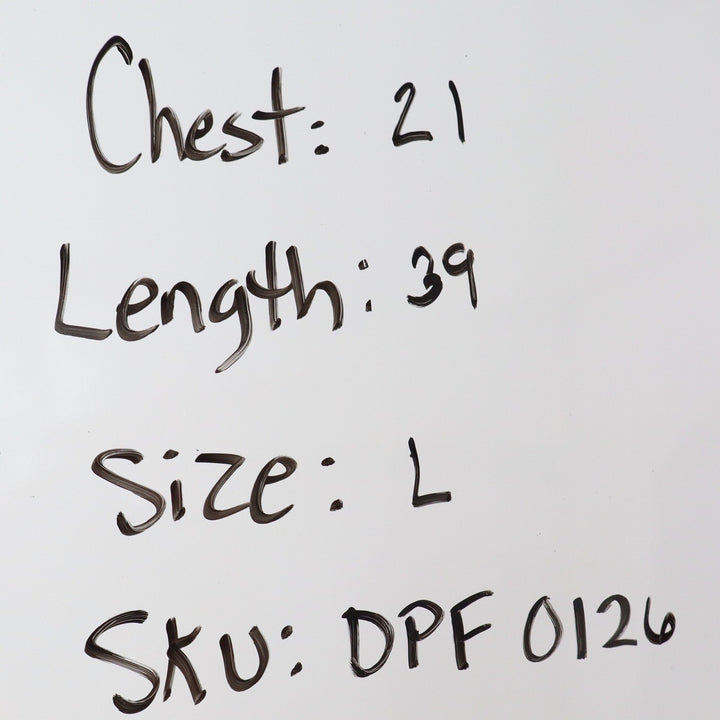 Chest: 21
Length: 39
Size: L
SKU: DPF 0126